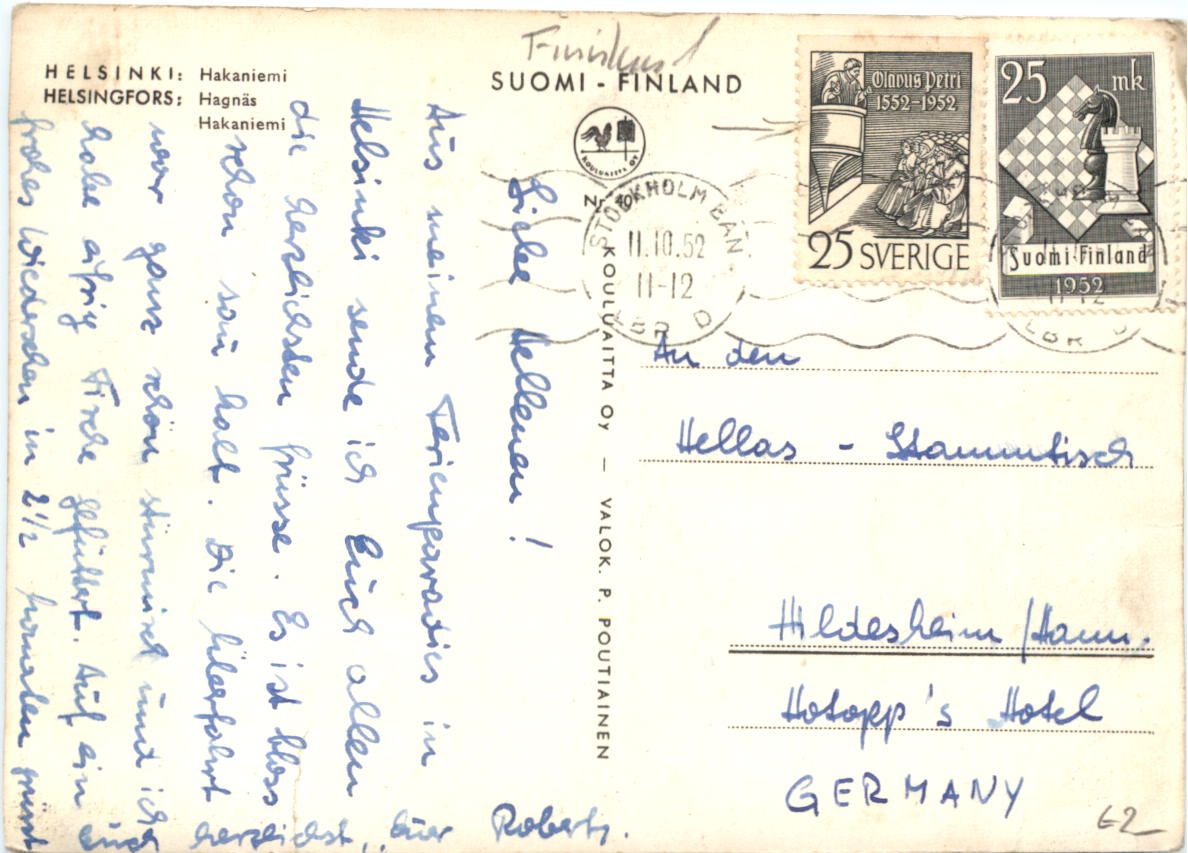 Finnland
HELSINKI: Hakaniemi
HELSINGFORS: Hagnäs
Hakaniemi
SUOMI - FINLAND
KOULUAITTA OY
Nr. 40
KOULUAITTA Oy — VALOK. P. POUTIAINEN
Olavus Petri
1552-1952
25 SVERIGE
25 mk
Suomi-Finland
1952
STOCKHOLM BAN
11.10.52
11-12
LBR D
11-12
LBR D
Liebe Hellenen!
Aus meinem Ferienparadies in
Helsinki sende ich Euch allen
die herzlichsten Grüsse. Es ist bloss
schon sau kalt. Die Überfahrt
war ganz schön stürmisch und ich
habe eifrig Fische gefüttert. Auf ein
frohes Wiedersehen in 2 1/2 Monaten grüsst
Euch herzlichst, Euer Robert.
An den
Hellas - Stammtisch
Hildesheim/Hann.
Hotopp's Hotel
GERMANY
62